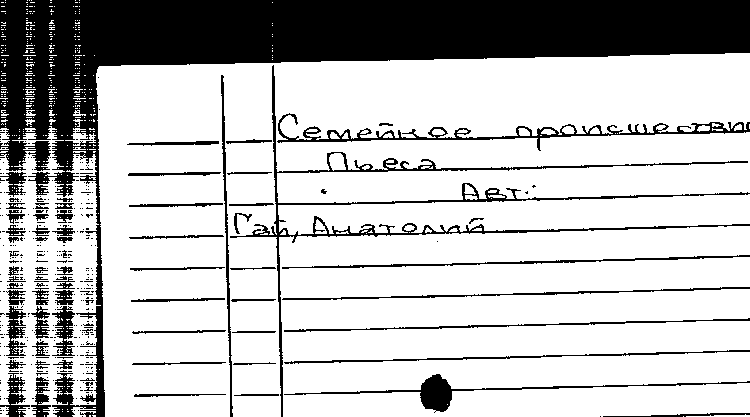 Семейное происшестви
Пьеса
Авт.:
Гай, Анатолий